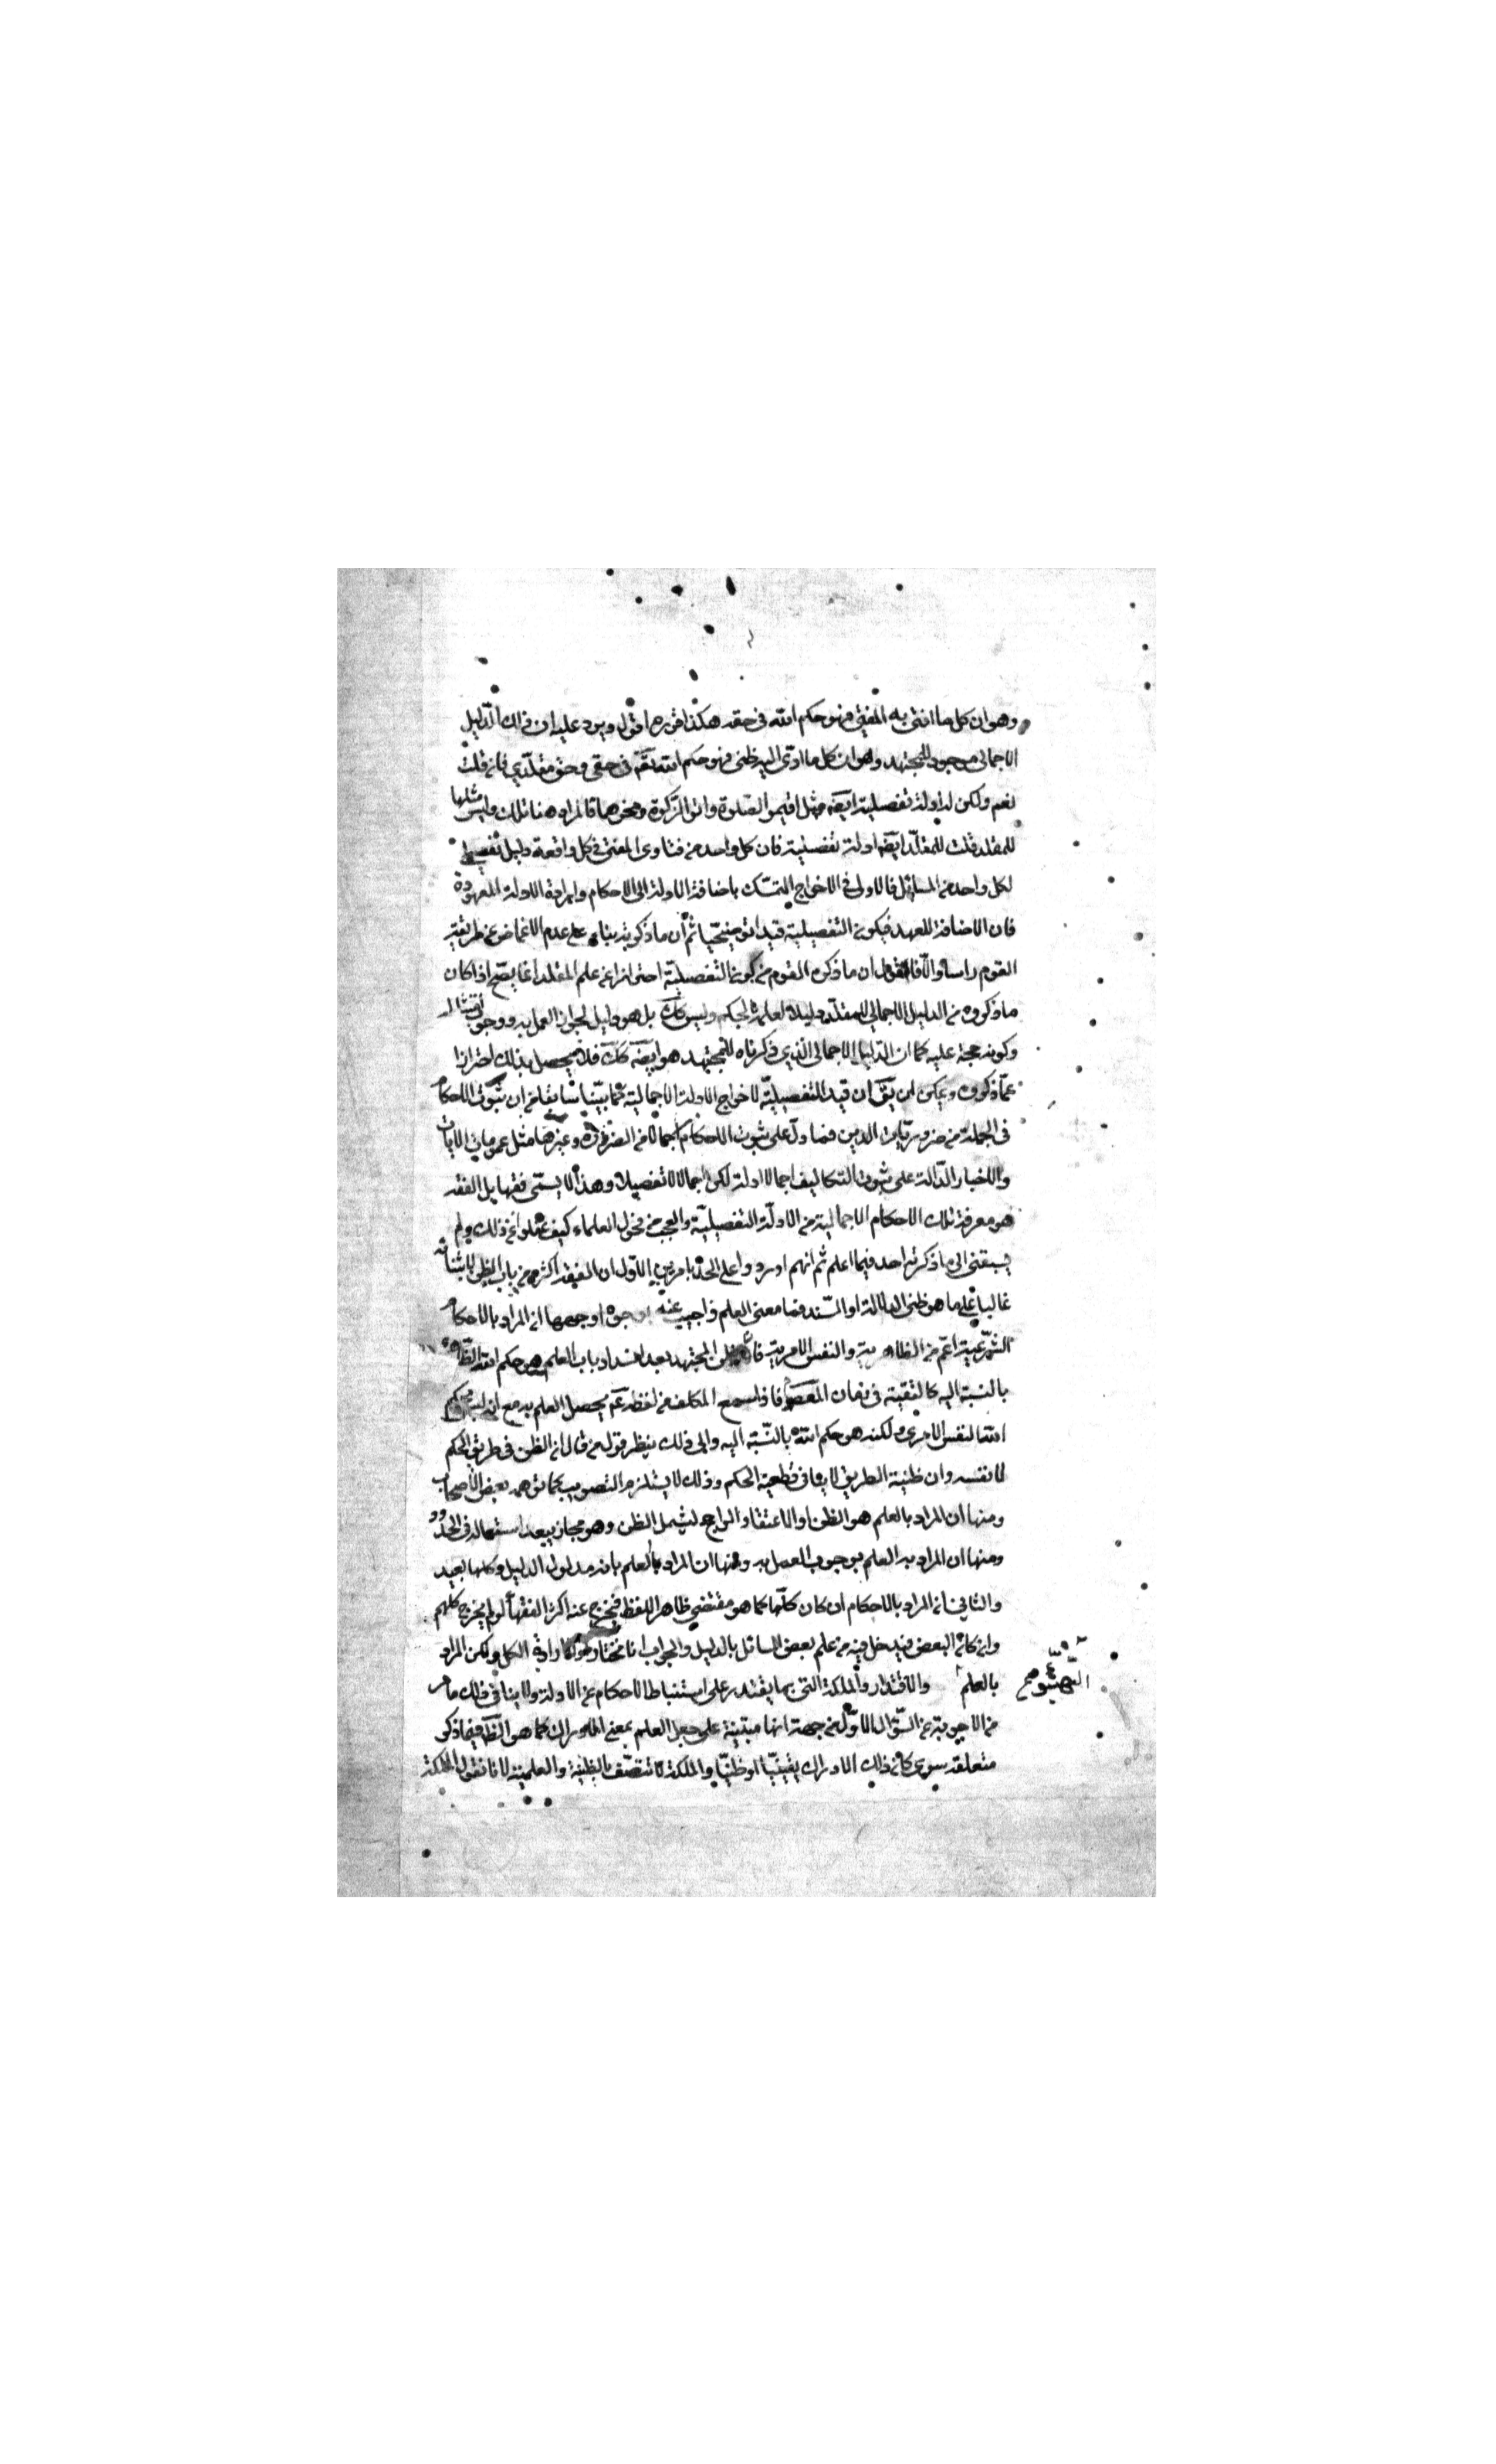 وهو ان كل ما افتى به المفتى فهو حكم الله فى حقه هكذا قرره اقول ويرد عليه ان ذلك الدّليل
الاجمالى موجود للمجتهد وهو ان كل ما ادّى اليه ظنى فهو حكم الله تعّه فى حقى وحق مقلّدي فان قلت
نعم ولكن له ادلة تفصيلية ايضَه مثل اقيموا الصّلوة واتوا الزّكوة ونحوهما فالمراد هنا تلك وليس مثلها
للمقلد قلت للمقلّد ايضَه ادلة تفصيلية فان كل واحد من فتاوى المفتى فى كل واقعة دليل تفصيلى
لكل واحد من المسائل فالاولى فى الاخراج التمسّك باضافة الادلة الى الاحكام وارادة الادلة المعهودة
فان الاضافة للعهد فيكون التفصيلية قيدا توضيحيّا ثم ان ما ذكرته بناء على عدم الاغماض عن طريقة
القوم راسا والّا فاقول ان ما ذكره القوم من كون التفصيليّة احترازا عن علم المقلد انما يصّح اذا كان
ما ذكروه من الدليل الاجمالى للمقلّد دليلا لعلمه بالحكم وليس كك بل هو دليل لجواز العمل به ووجوب امتثاله
وكونه حجة عليه كما ان الدّليل الاجمالى الّذي ذكرناه للمجتهد هو ايضَه كك فلا يحصل بذلك احترازا
عمّا ذكروه ويمكن ان يقَ ان قيد التفصيليّة لاخراج الادلة الاجمالية كما بيّنا سابقا من ان ثبوت الاحكام
فى الجملة من ضروريّات الدين فما دلّ على ثبوت الاحكام اجمالا من الضرورة وغيرها مثل عمومات الايات
والاخبار الدّالة على ثبوت التكاليف اجمالا ادلة لكن اجمالا لا تفصيلا وهذا لا يسمّى فقها بل الفقه
هو معرفة تلك الاحكام الاجمالية من الادلّة التفصيليّة والعجب من فحول العلماء كيف غفلوا عن ذلك ولم
يسبقنى الى ما ذكرته احد فيما اعلم ثم انهم اوردوا على الحدّ بامرين الاوّل ان الفقه اكثره من باب الظن لابتنائه
غالبا على ما هو ظنى الدلالة او السّند فما معنى العلم واجيب عنه بوجوه اوجهها ان المراد بالاحكام
الشّرعية اعّم من الظاهرية والنفس الامرية فان ظن المجتهد بعد انسداد باب العلم هو حكم الله الظّاهرى
بالنسبة اليه كالتقية فى زمان المعصوم فاذا سمع المكلف من لفظه عَم يحصل العلم به مع انه ليس بحكم
الله النفس الامرى ولكنه هو حكم الله بالنّسبة اليه والى ذلك ينظر قول من قال ان الظن فى طريق الحكم
لا نفسه وان ظنية الطريق لا ينافى قطعية الحكم وذلك لا يستلزم التصويب كما توهمه بعض الاصحاب
ومنها ان المراد بالعلم هو الظن او الاعتقاد الراجح ليشمل الظن وهو مجاز يبعد استعماله فى الحدود
ومنها ان المراد به العلم بوجوب العمل به ومنها ان المراد بالعلم بانه مدلول الدليل وكلها بعيد
والثانى ان المراد بالاحكام ان كان كلّها كما هو مقتضى ظاهر اللفظ فيخرج عنه اكثر الفقهآ لو لم يخرج كلهم
وان كان البعض فيدخل فيه من علم بعض المسائل بالدليل والجواب انا نختار ارادة الكل ولكن المراد
بالعلم التهيّؤ صح والاقتدار والملكة التى بها يقتدر على استنباط الاحكام عن الادلة ولا ينافى ذلك ما مر
من الاجوبة عن السّؤال الاوّل من جهة انها مبتنية على جعل العلم بمعنى الادراك كما هو الظَه فيما ذكر
متعلقه سوى كان ذلك الادراك يقينيّا او ظنيّا والملكة لا تتصّف بالظنية والعلمية لانا نقول الملكة